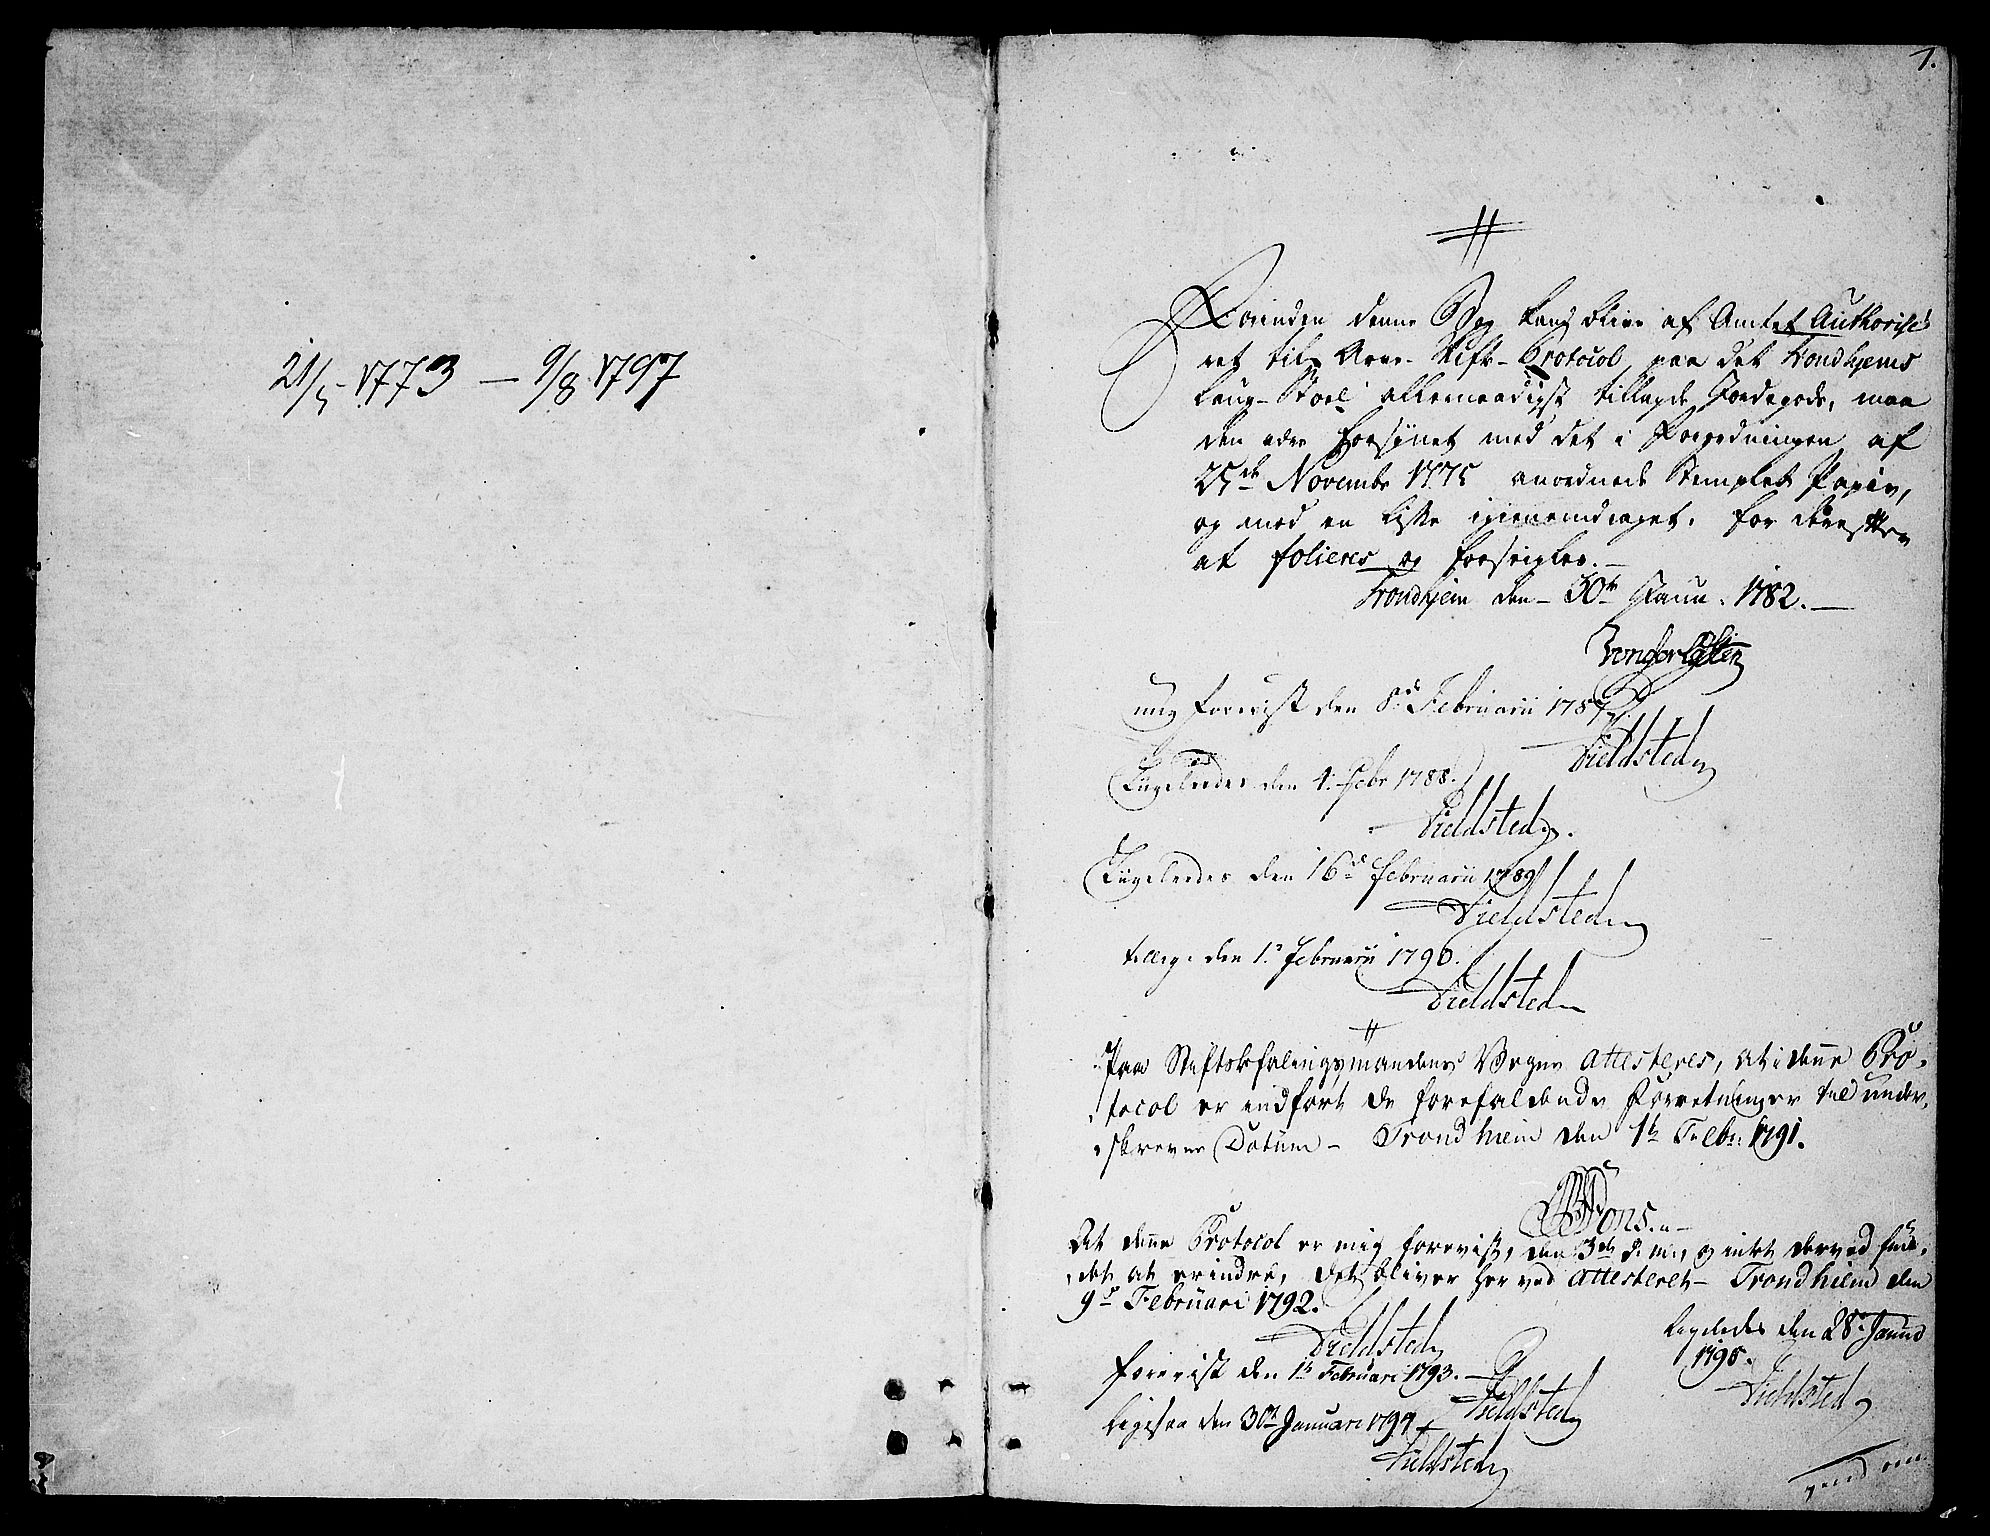 21/5 - 1773 - 9/8 1797
1.
Forinden denne Bog kand blive af Amtet Authorise-
ret til Arve-Skifte-Protocol, paa det Trondhjems
Laug-Stoel allernaadigst tillagde Jordegods, maa
den være forsÿnet med det i Forordningen af
25de Novembr 1775 anordnede Stemplet Papiir,
og med en Lidse igiennemdraget, for derefter
at folieres og forseigles.
Trondhjem den 30te Janu: 1782.
mig foreviist den 8de Februarii 1787.
Fieldsted
Liigeleedes den 4. Febr 1788.
Fieldsted
Liigeleedes den 16de Februarii 1789
Fieldsted
den 1. Februarii 1790.
Fieldsted
Paa Stiftsbefalingsmandens Vegne attesteres, at i denne Pro-
tocol er indført de forefaldende Forretninger til under-
skrevne Datum - Trondhiem den 1te Febr: 1791.
At denne Protocol er mig foreviist, den 3de d. m., og intet derved fun-
det at erindre, det bliver herved attesteret - Trondhiem den
9de Februari 1792.
Fieldsted
Ligeledes den 28de Janua
1795.
Fieldsted
foreviist den 1te Februari 1793.
Fieldsted
Ligesaa den 30te Januari 1794
Fieldsted
vend om